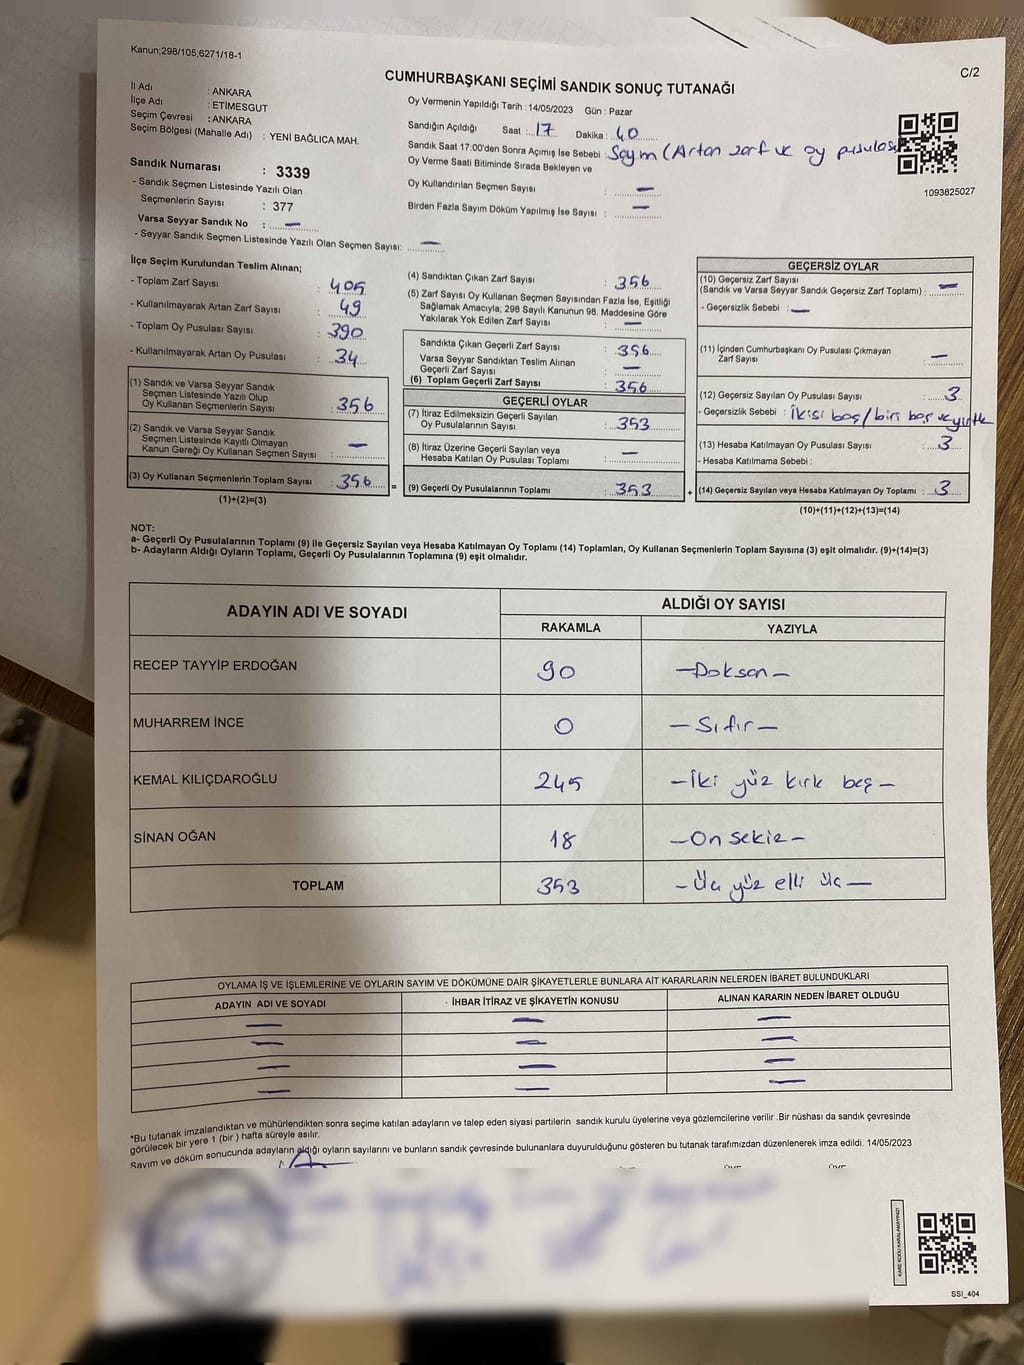 Kanun;298/105,6271/18-1
C/2
CUMHURBAŞKANI SEÇİMİ SANDIK SONUÇ TUTANAĞI
İl Adı : ANKARA
İlçe Adı : ETİMESGUT
Seçim Çevresi : ANKARA
Seçim Bölgesi (Mahalle Adı) : YENİ BAĞLICA MAH.
Sandık Numarası : 3339
- Sandık Seçmen Listesinde Yazılı Olan
Seçmenlerin Sayısı : 377
Varsa Seyyar Sandık No : —
- Seyyar Sandık Seçmen Listesinde Yazılı Olan Seçmen Sayısı: —
Oy Vermenin Yapıldığı Tarih : 14/05/2023 Gün : Pazar
Sandığın Açıldığı Saat : 17 Dakika : 40
Sandık Saat 17:00'den Sonra Açımış İse Sebebi : Sayım (Artan zarf ve oy pusulası
Oy Verme Saati Bitiminde Sırada Bekleyen ve
Oy Kullandırılan Seçmen Sayısı : —
Birden Fazla Sayım Döküm Yapılmış İse Sayısı : —
1093825027
İlçe Seçim Kurulundan Teslim Alınan;
- Toplam Zarf Sayısı : 405
- Kullanılmayarak Artan Zarf Sayısı : 49
- Toplam Oy Pusulası Sayısı : 390
- Kullanılmayarak Artan Oy Pusulası : 34
(1) Sandık ve Varsa Seyyar Sandık
Seçmen Listesinde Yazılı Olup
Oy Kullanan Seçmenlerin Sayısı : 356
(2) Sandık ve Varsa Seyyar Sandık
Seçmen Listesinde Kayıtlı Olmayan
Kanun Gereği Oy Kullanan Seçmen Sayısı : —
(3) Oy Kullanan Seçmenlerin Toplam Sayısı : 356 =
(1)+(2)=(3)
(4) Sandıktan Çıkan Zarf Sayısı : 356
(5) Zarf Sayısı Oy Kullanan Seçmen Sayısından Fazla İse, Eşitliği
Sağlamak Amacıyla; 298 Sayılı Kanunun 98. Maddesine Göre
Yakılarak Yok Edilen Zarf Sayısı : —
Sandıkta Çıkan Geçerli Zarf Sayısı : 356
Varsa Seyyar Sandıktan Teslim Alınan
Geçerli Zarf Sayısı : —
(6) Toplam Geçerli Zarf Sayısı : 356
GEÇERLİ OYLAR
(7) İtiraz Edilmeksizin Geçerli Sayılan
Oy Pusulalarının Sayısı : 353
(8) İtiraz Üzerine Geçerli Sayılan veya
Hesaba Katılan Oy Pusulası Toplamı : —
(9) Geçerli Oy Pusulalarının Toplamı : 353 +
GEÇERSİZ OYLAR
(10) Geçersiz Zarf Sayısı
(Sandık ve Varsa Seyyar Sandık Geçersiz Zarf Toplamı) : —
- Geçersizlik Sebebi : —
(11) İçinden Cumhurbaşkanı Oy Pusulası Çıkmayan
Zarf Sayısı : —
(12) Geçersiz Sayılan Oy Pusulası Sayısı : 3
- Geçersizlik Sebebi : İkisi boş/biri boş
(13) Hesaba Katılmayan Oy Pusulası Sayısı : 3
- Hesaba Katılmama Sebebi :
(14) Geçersiz Sayılan veya Hesaba Katılmayan Oy Toplamı : 3
(10)+(11)+(12)+(13)=(14)
NOT:
a- Geçerli Oy Pusulalarının Toplamı (9) ile Geçersiz Sayılan veya Hesaba Katılmayan Oy Toplamı (14) Toplamları, Oy Kullanan Seçmenlerin Toplam Sayısına (3) eşit olmalıdır. (9)+(14)=(3)
b- Adayların Aldığı Oyların Toplamı, Geçerli Oy Pusulalarının Toplamına (9) eşit olmalıdır.
ADAYIN ADI VE SOYADI
ALDIĞI OY SAYISI
RAKAMLA YAZIYLA
RECEP TAYYİP ERDOĞAN 90 —Doksan—
MUHARREM İNCE 0 —Sıfır—
KEMAL KILIÇDAROĞLU 245 —İki yüz kırk beş—
SİNAN OĞAN 18 —On sekiz—
TOPLAM 353 —Üç yüz elli üç—
OYLAMA İŞ VE İŞLEMLERİNE VE OYLARIN SAYIM VE DÖKÜMÜNE DAİR ŞİKAYETLERLE BUNLARA AİT KARARLARIN NELERDEN İBARET BULUNDUKLARI
ADAYIN ADI VE SOYADI İHBAR İTİRAZ VE ŞİKAYETİN KONUSU ALINAN KARARIN NEDEN İBARET OLDUĞU
— — —
— — —
— — —
— — —
*Bu tutanak imzalandıktan ve mühürlendikten sonra seçime katılan adayların ve talep eden siyasi partilerin sandık kurulu üyelerine veya gözlemcilerine verilir .Bir nüshası da sandık çevresinde
görülecek bir yere 1 (bir ) hafta süreyle asılır.
Sayım ve döküm sonucunda adayların aldığı oyların sayılarını ve bunların sandık çevresinde bulunanlara duyurulduğunu gösteren bu tutanak tarafımızdan düzenlenerek imza edildi. 14/05/2023
KARE KODU KARALAMAYINIZ!
SSI_404